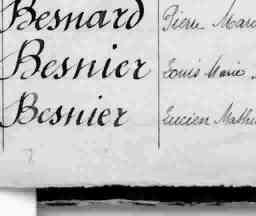 Besnard Pierre Mar
Besnier Louis Marie
Besnier Lucien Math